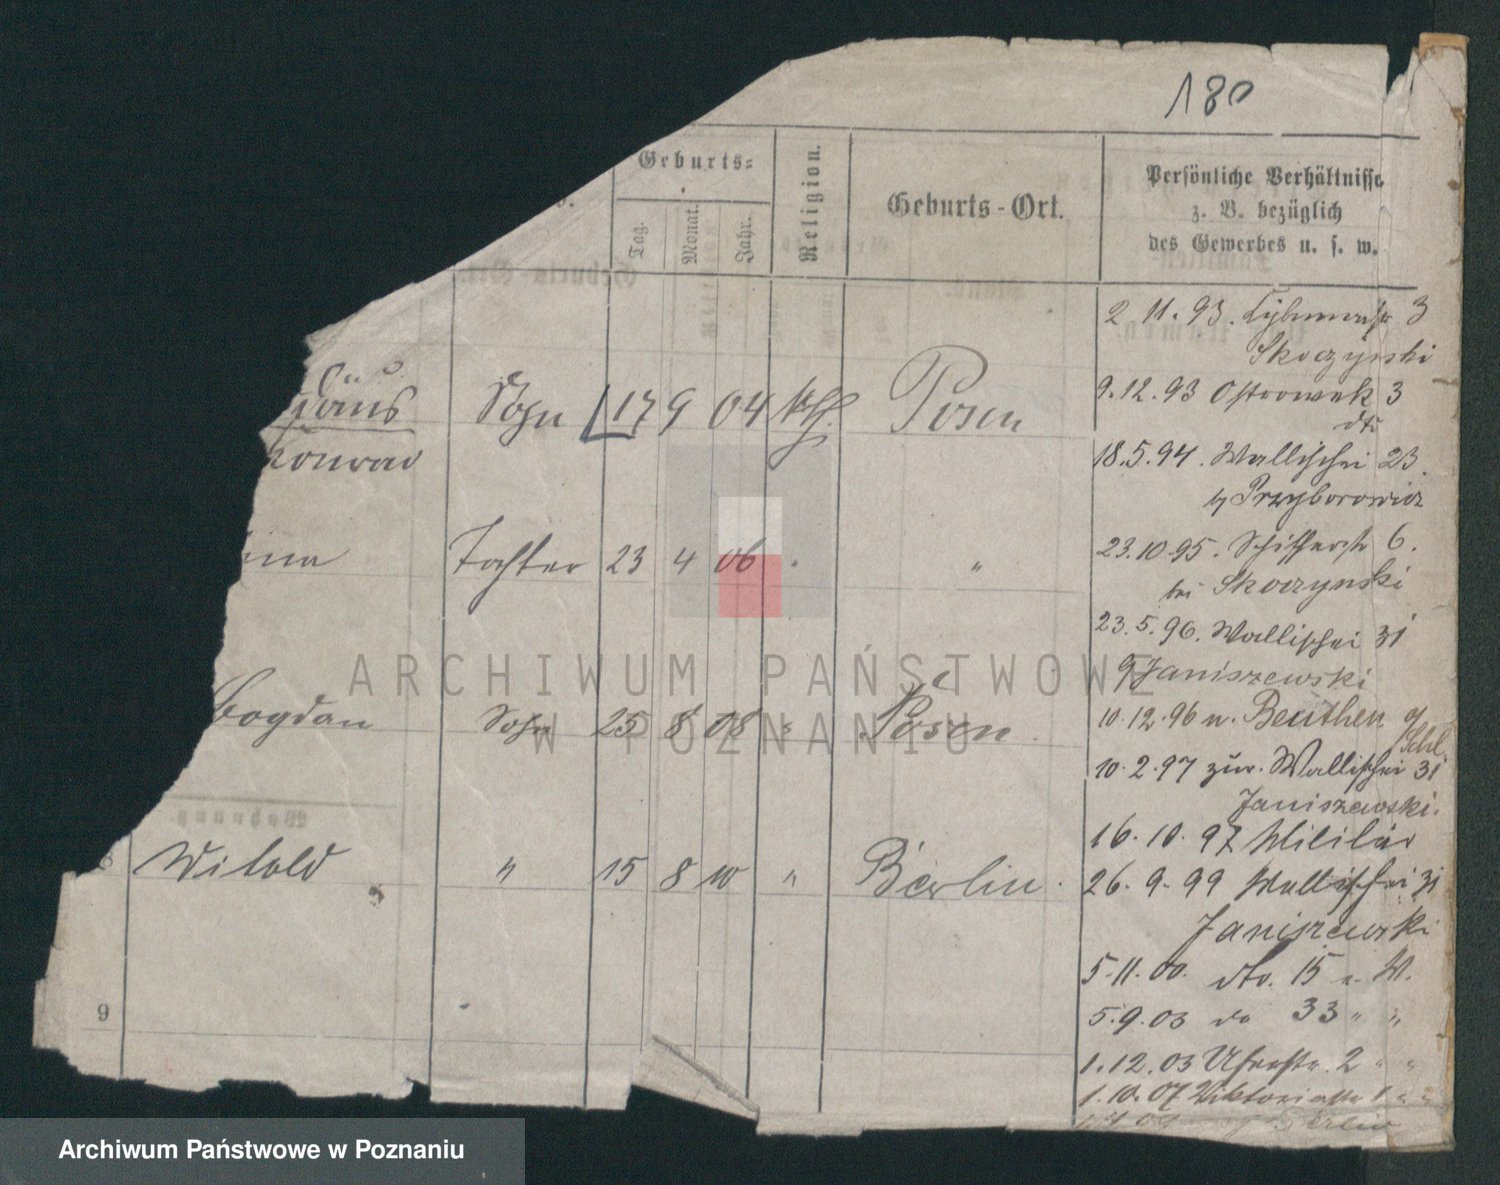 180
Geburts=
Tag.
Monat.
Jahr.
Religion.
Geburts-Ort.
Persönliche Verhältnisse
z. B. bezüglich
des Gewerbes u. s. w.
2. 11. 93. 3
Skoczynski
9.12.93 Ostrowek 3
dto
18.5.94. Wallischei 23.
by Przyborowicz
23.10.95. Schifferstr 6.
bei Skoczynski
23.5.96. Wallischei 31
Janiszewski
10.12.96 n. Beuthen o/
Schl.
10.2.97 zur. Wallischei 31
Janiszewski.
16. 10. 97 Militär
26. 9. 99 Wallischei 31
Janiszewski
5.11.00. dto. 15 W.
5.9.03 do 33 " "
1.12.03 2 " "
1.10.07 Viktoriastr 1 " "
Berlin
Sohn 17 9 04 kth. Posen
Konrad
Tochter 23 4 06 " "
Bogdan Sohn 25 8 08 " Posen
8 Witold " 15 8 10 " Berlin.
9
ARCHIWUM PAŃSTWOWE
W POZNANIU
Archiwum Państwowe w Poznaniu